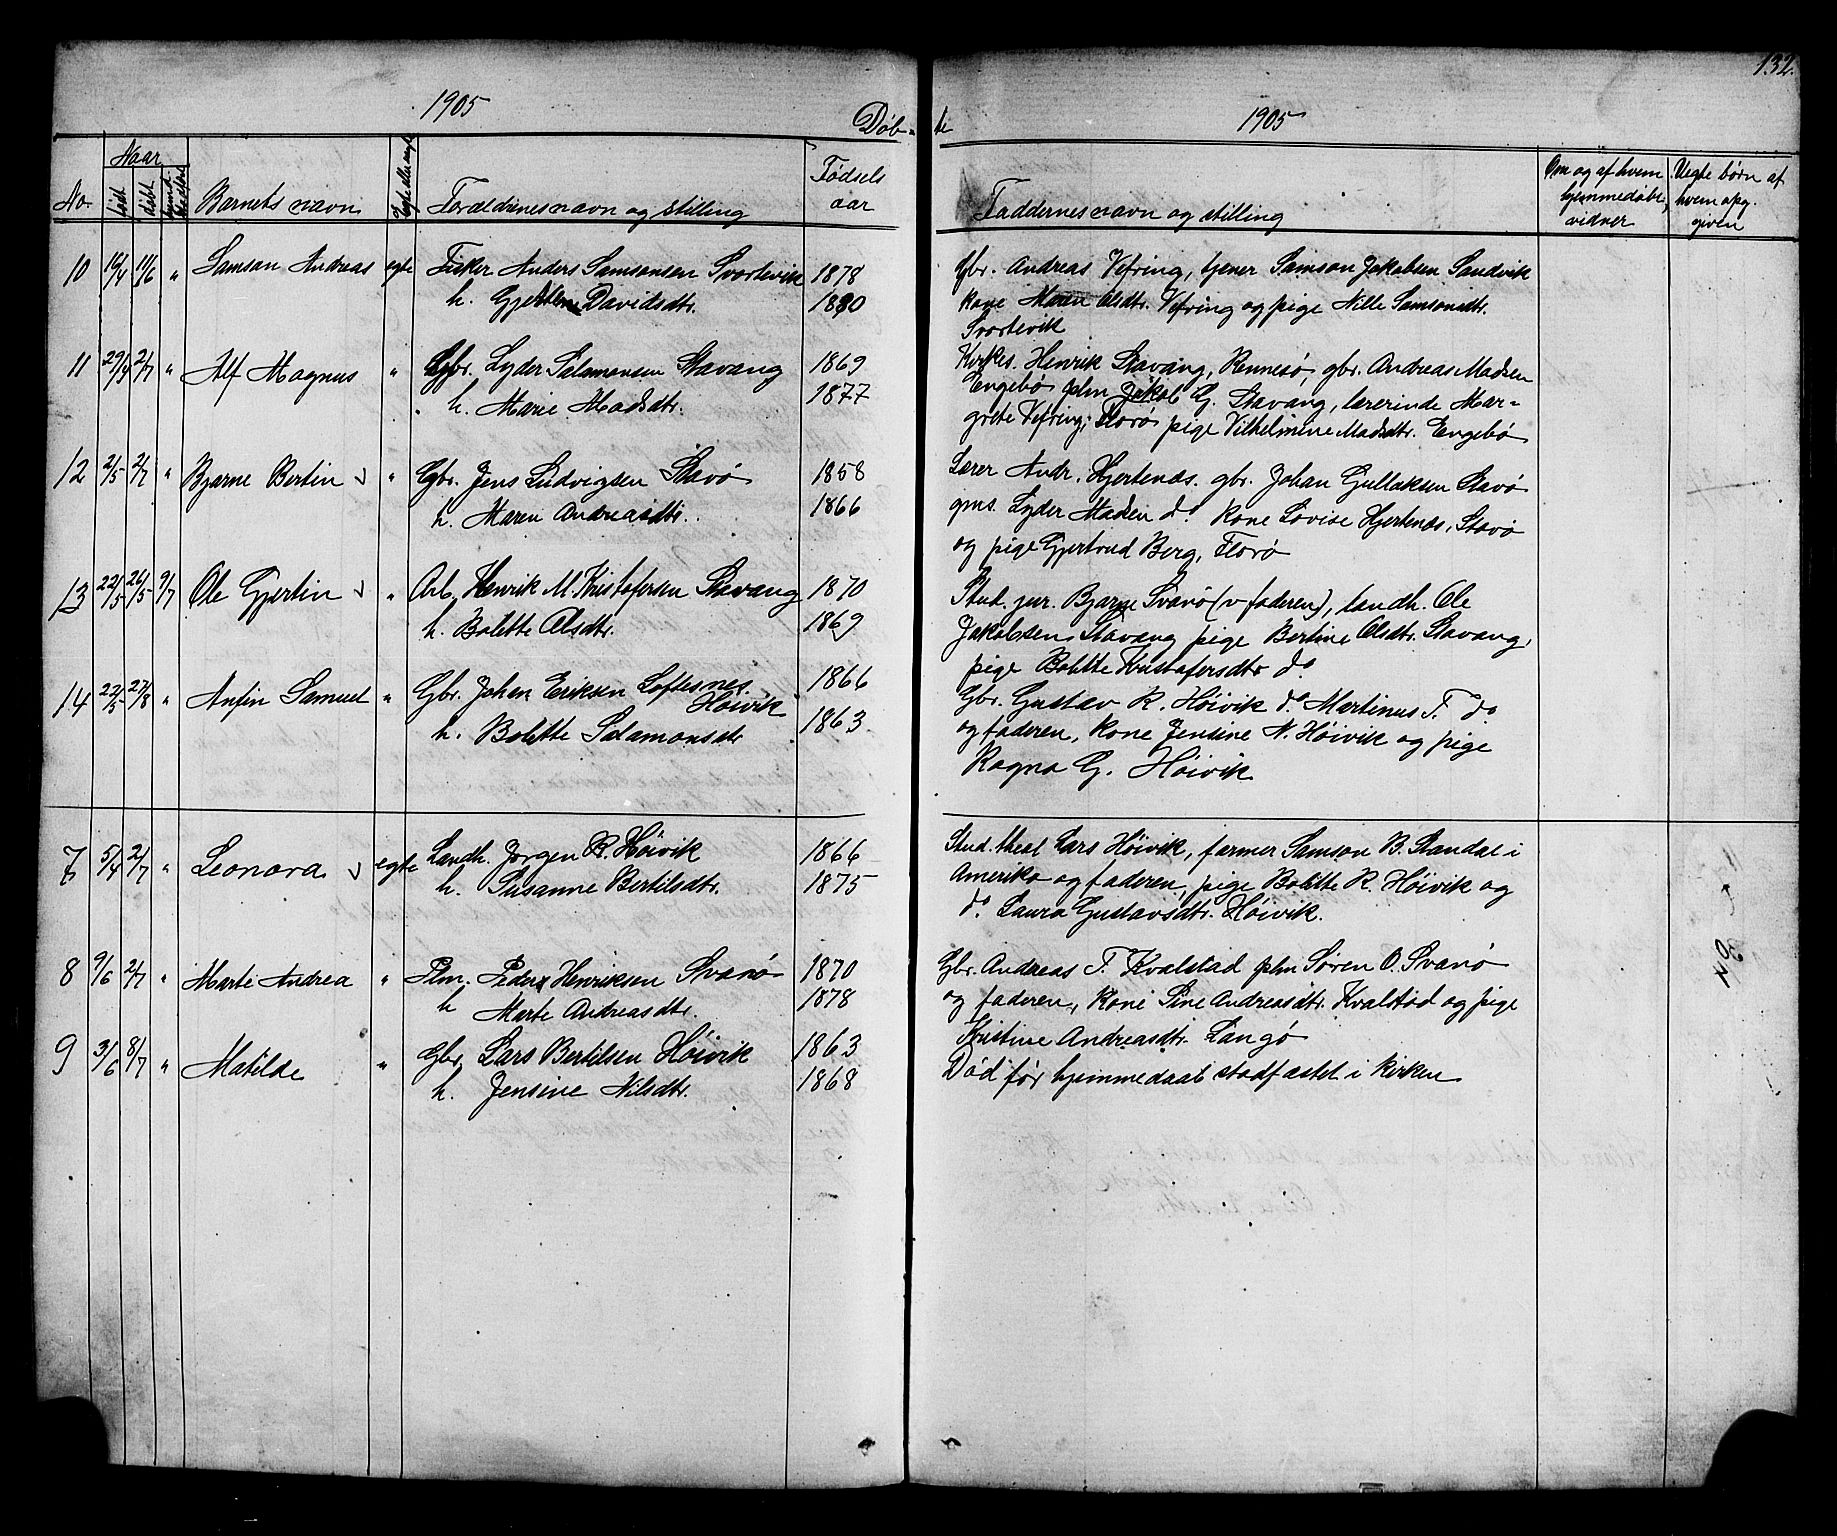 132.
1905
Døb-
te
1905
No.
Naar
født
døbt
Barnets navn
Forældrenes navn og stilling
Fødsels
aar
Faddernes navn og stilling
Om og af hvem
hjemmedøbt,
vidner
Uegte børn af
hvem opg.
given
10 16/4 11/6 " Samson Andreas egte Fisker Anders Samsonsen Svortevik 1878
h. Davidsdtr. 1880
Gbr. Andreas Vefring, tjener Samson Jakobsen Sandvik
kone Maren Olsdtr. Vefring og pige Nille Samsonsdtr.
Svortevik
11 29/3 2/7 " Alf Magnus " Gbr. Lyder Salamonsen Stavang 1869
h. Marie Madsdtr. 1877
Kirkes. Henrik Stavang, Rennesø, gbr. Andreas Madsen
Engebø plm Jakob G. Stavang, lærerinde Mar-
grete Vefring, Florø pige Vilhelmine Madsdtr. Engebø
12 2/5 2/7 " Bjarne Bertin " Gbr. Jens Ludvigsen Stavø 1858
h. Maren Andreasdtr. 1866
Lærer Andr. Hjertenæs. gbr. Johan Gullaksen Stavø
gms. Lyder Madsen do. kone Lovise Hjertenæs, Stavø
og pige Gjertrud Berg, Florø
13 22/5 26/5 9/7 Ole Gjertin " Arb. Henrik M. Kristofersen Stavang 1870
h. Bolette Olsdtr. 1869
Stud. jur. Bjarne Svanø (v faderen), landh. Ole
Jakobsen Stavang pige Bertine Olsdtr. Stavang,
pige Bolette Kristofersdtr do
14 22/5 27/8 " Anfin Samuel " Gbr. Johan Eriksen Loftesnes. 1866
Høivik
h. Bolette Salamonsdtr 1863
Gbr. Gustav R. Høivik do. Martinus T. do
og faderen, kone Jensine N. Høivik og pige
Ragna G. Høivik
7 5/4 2/7 " Leonora egte Landh. Jørgen R. Høivik 1866
h. Susanne Bertilsdtr. 1875
Stud. theol Lars Høivik, farmer Samson B. Standal i
Amerika og faderen, pige Bolette R. Høivik og
do. Laura Gustavsdtr. Høivik.
8 9/6 2/7 " Marte Andrea " Plm. Peder Henriksen Svanø 1870
h Marte Andreasdtr. 1878
Gbr. Andreas T. Kvalstad plm Søren O. Svanø
og faderen, kone Sine Andreasdtr. Kvalstad og pige
Kristine Andreasdtr. Langø
9 3/6 8/7 " Matilde " Gbr. Lars Bertilsen Høivik 1863
h. Jensine Nilsdtr. 1868
Død før hjemmedaab stadfæstet i kirken